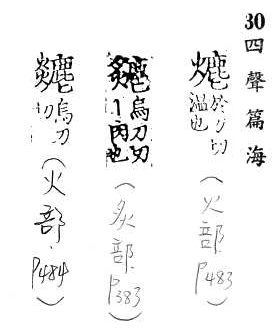 30四聲篇海
熝於刀切溫也(火部.P483)
烏刀切1肉也(炙部.P383)
烏刀切(火部.P484)